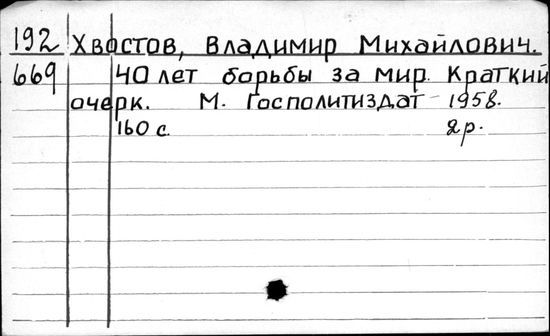 192 Хвостов, Владимир Михайлович.
669 40 лет борьбы за мир. Краткий
очерк. М. Госполитиздат 1958.
160 с. 2р.